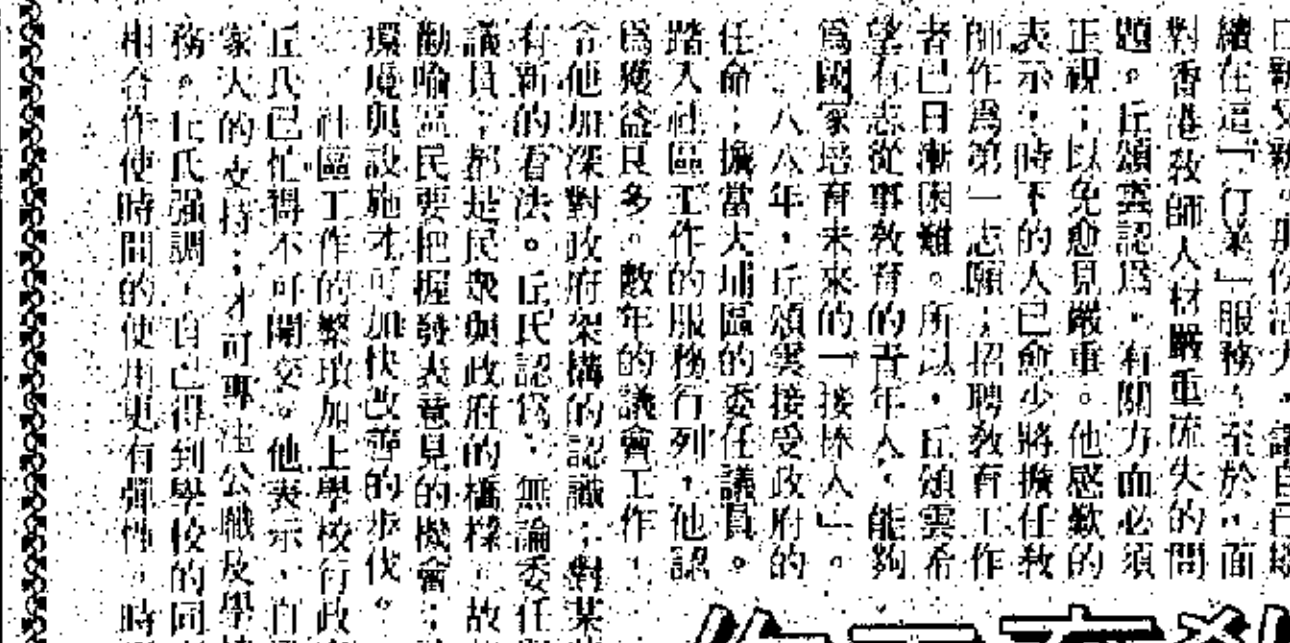 日新又新。用份活力,讓自己繼
續在這「行業」服務;至於,面
對香港教師人材嚴重流失的問
題。丘頌雲認爲,有關方面必須
正視;以免愈見嚴重。他感歎的
表示:時下的人已愈少將擔任教
師作爲第一志願;招聘教育工作
者已日漸困難。所以,丘頌雲希
望有志從事教育的青年人,能夠
爲國家培育未來的「接捧人」。
八八年,丘頌雲接受政府的
任命;擔當大埔區的委任議員。
踏入社區工作的服務行列,他認
爲獲益良多。數年的議會工作,
令他加深對政府架構的認識;對某
有新的看法。丘氏認爲,無論委任
議員;都是民衆與政府的橋樑;故
勸喻區民要把握發表意見的機會;
環境與設施才可加快改善的步伐。
社區工作的繁瑣加上學校行政
丘氏已忙得不可開交。他表示,自
家人的支持;才可專注公職及學
務。丘氏強調,自己得到學校的同
相合作使時間的使用更有彈性。時